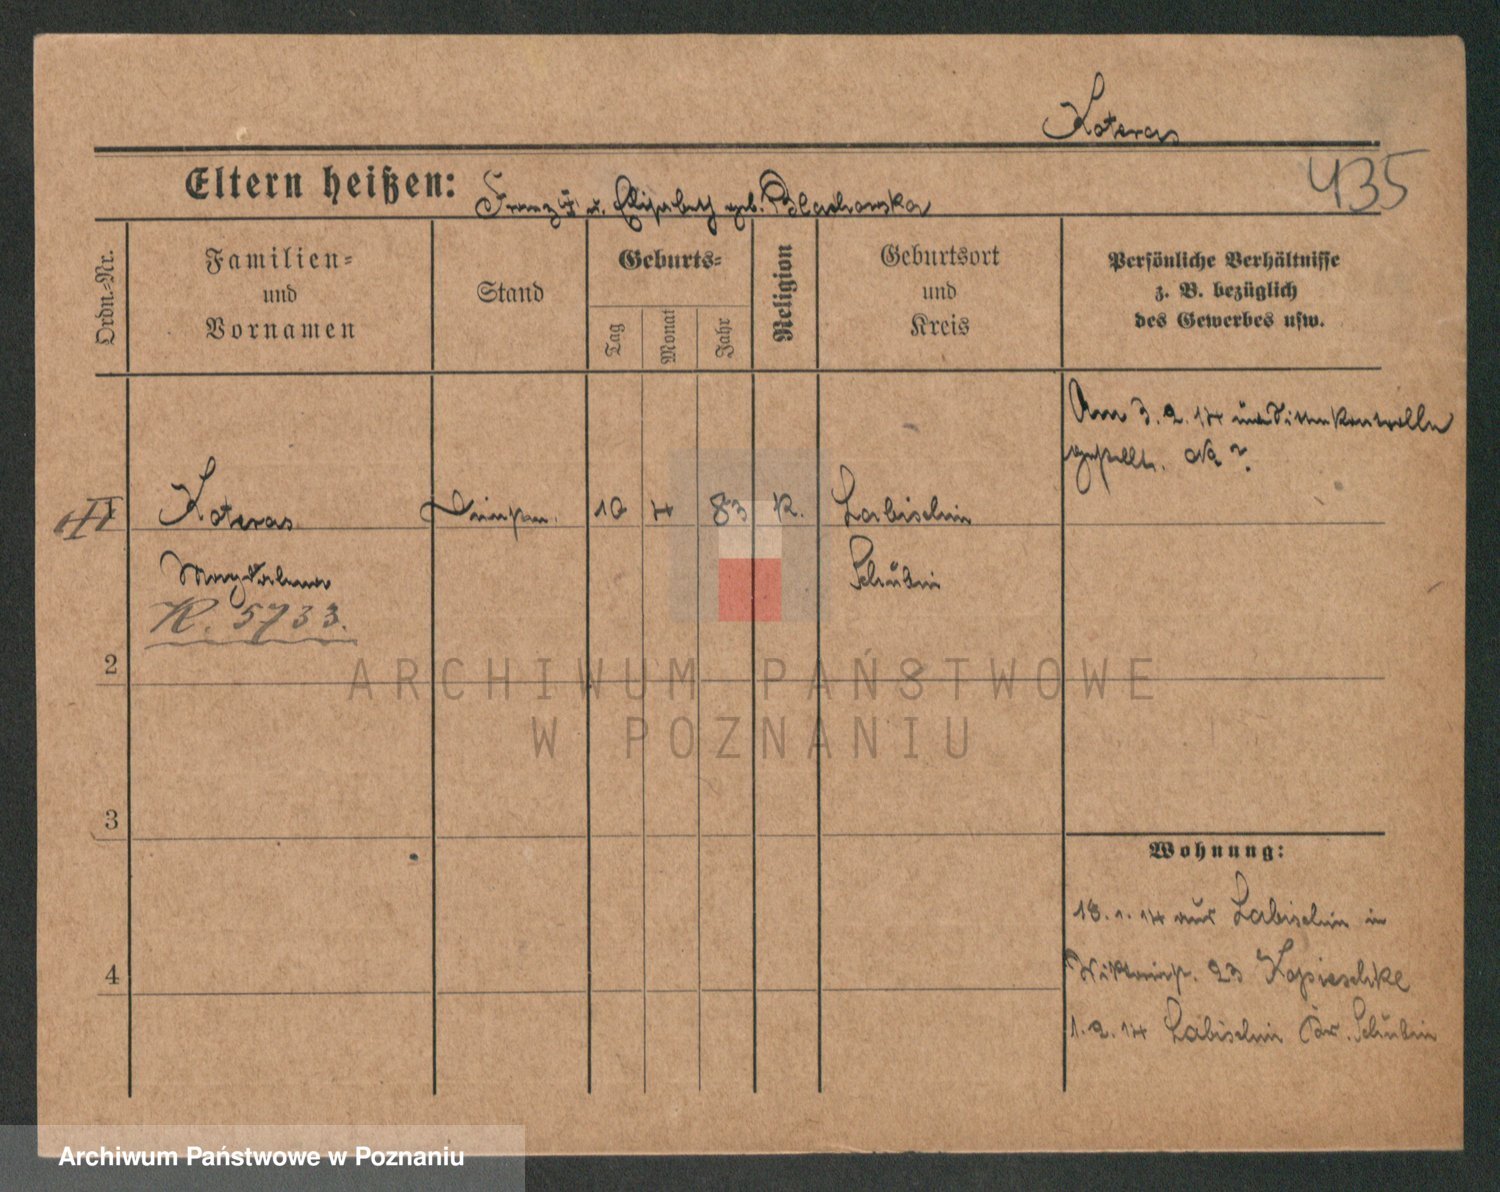 Koteras
435
Eltern heißen: Franz † u. Elisabeth geb. Blachowska
Ordn.-Nr.
Familien-
und
Vornamen
Stand
Geburts-
Tag
Monat
Jahr
Religion
Geburtsort
und
Kreis
Persönliche Verhältnisse
z. B. bezüglich
des Gewerbes usw.
Am 3.2.14 u. Sittenkontrolle
gestellt.
1
Koteras
10 4 83 K.
Labischin
Magdalena
Schubin
K. 5733.
2
ARCHIWUM PAŃSTWOWE
W POZNANIU
3
4
Wohnung:
18.1.14 aus Labischin in
23 Kopieschke
1.2.14 Labischin Kr. Schubin
Archiwum Państwowe w Poznaniu